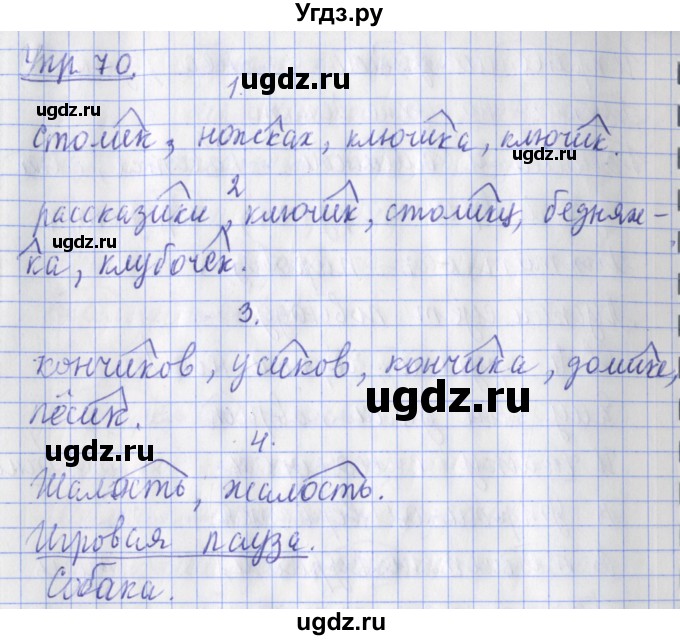 Угдз.ру
Упр 70.
ugdz.ru
ugdz.ru
1.
столик, ножках, ключика, ключик.
ugdz.ru
2
рассказики, ключик, столику, бедняж-
ugdz.ru
ка, клубочек.
3.
кончиков, усиков, кончика, домике,
ugdz.ru
пёсик.
4.
ugdz.ru
Жалость, жалость.
Игровая пауза.
ugdz.ru
Собака.
ugdz.ru
ugdz.ru